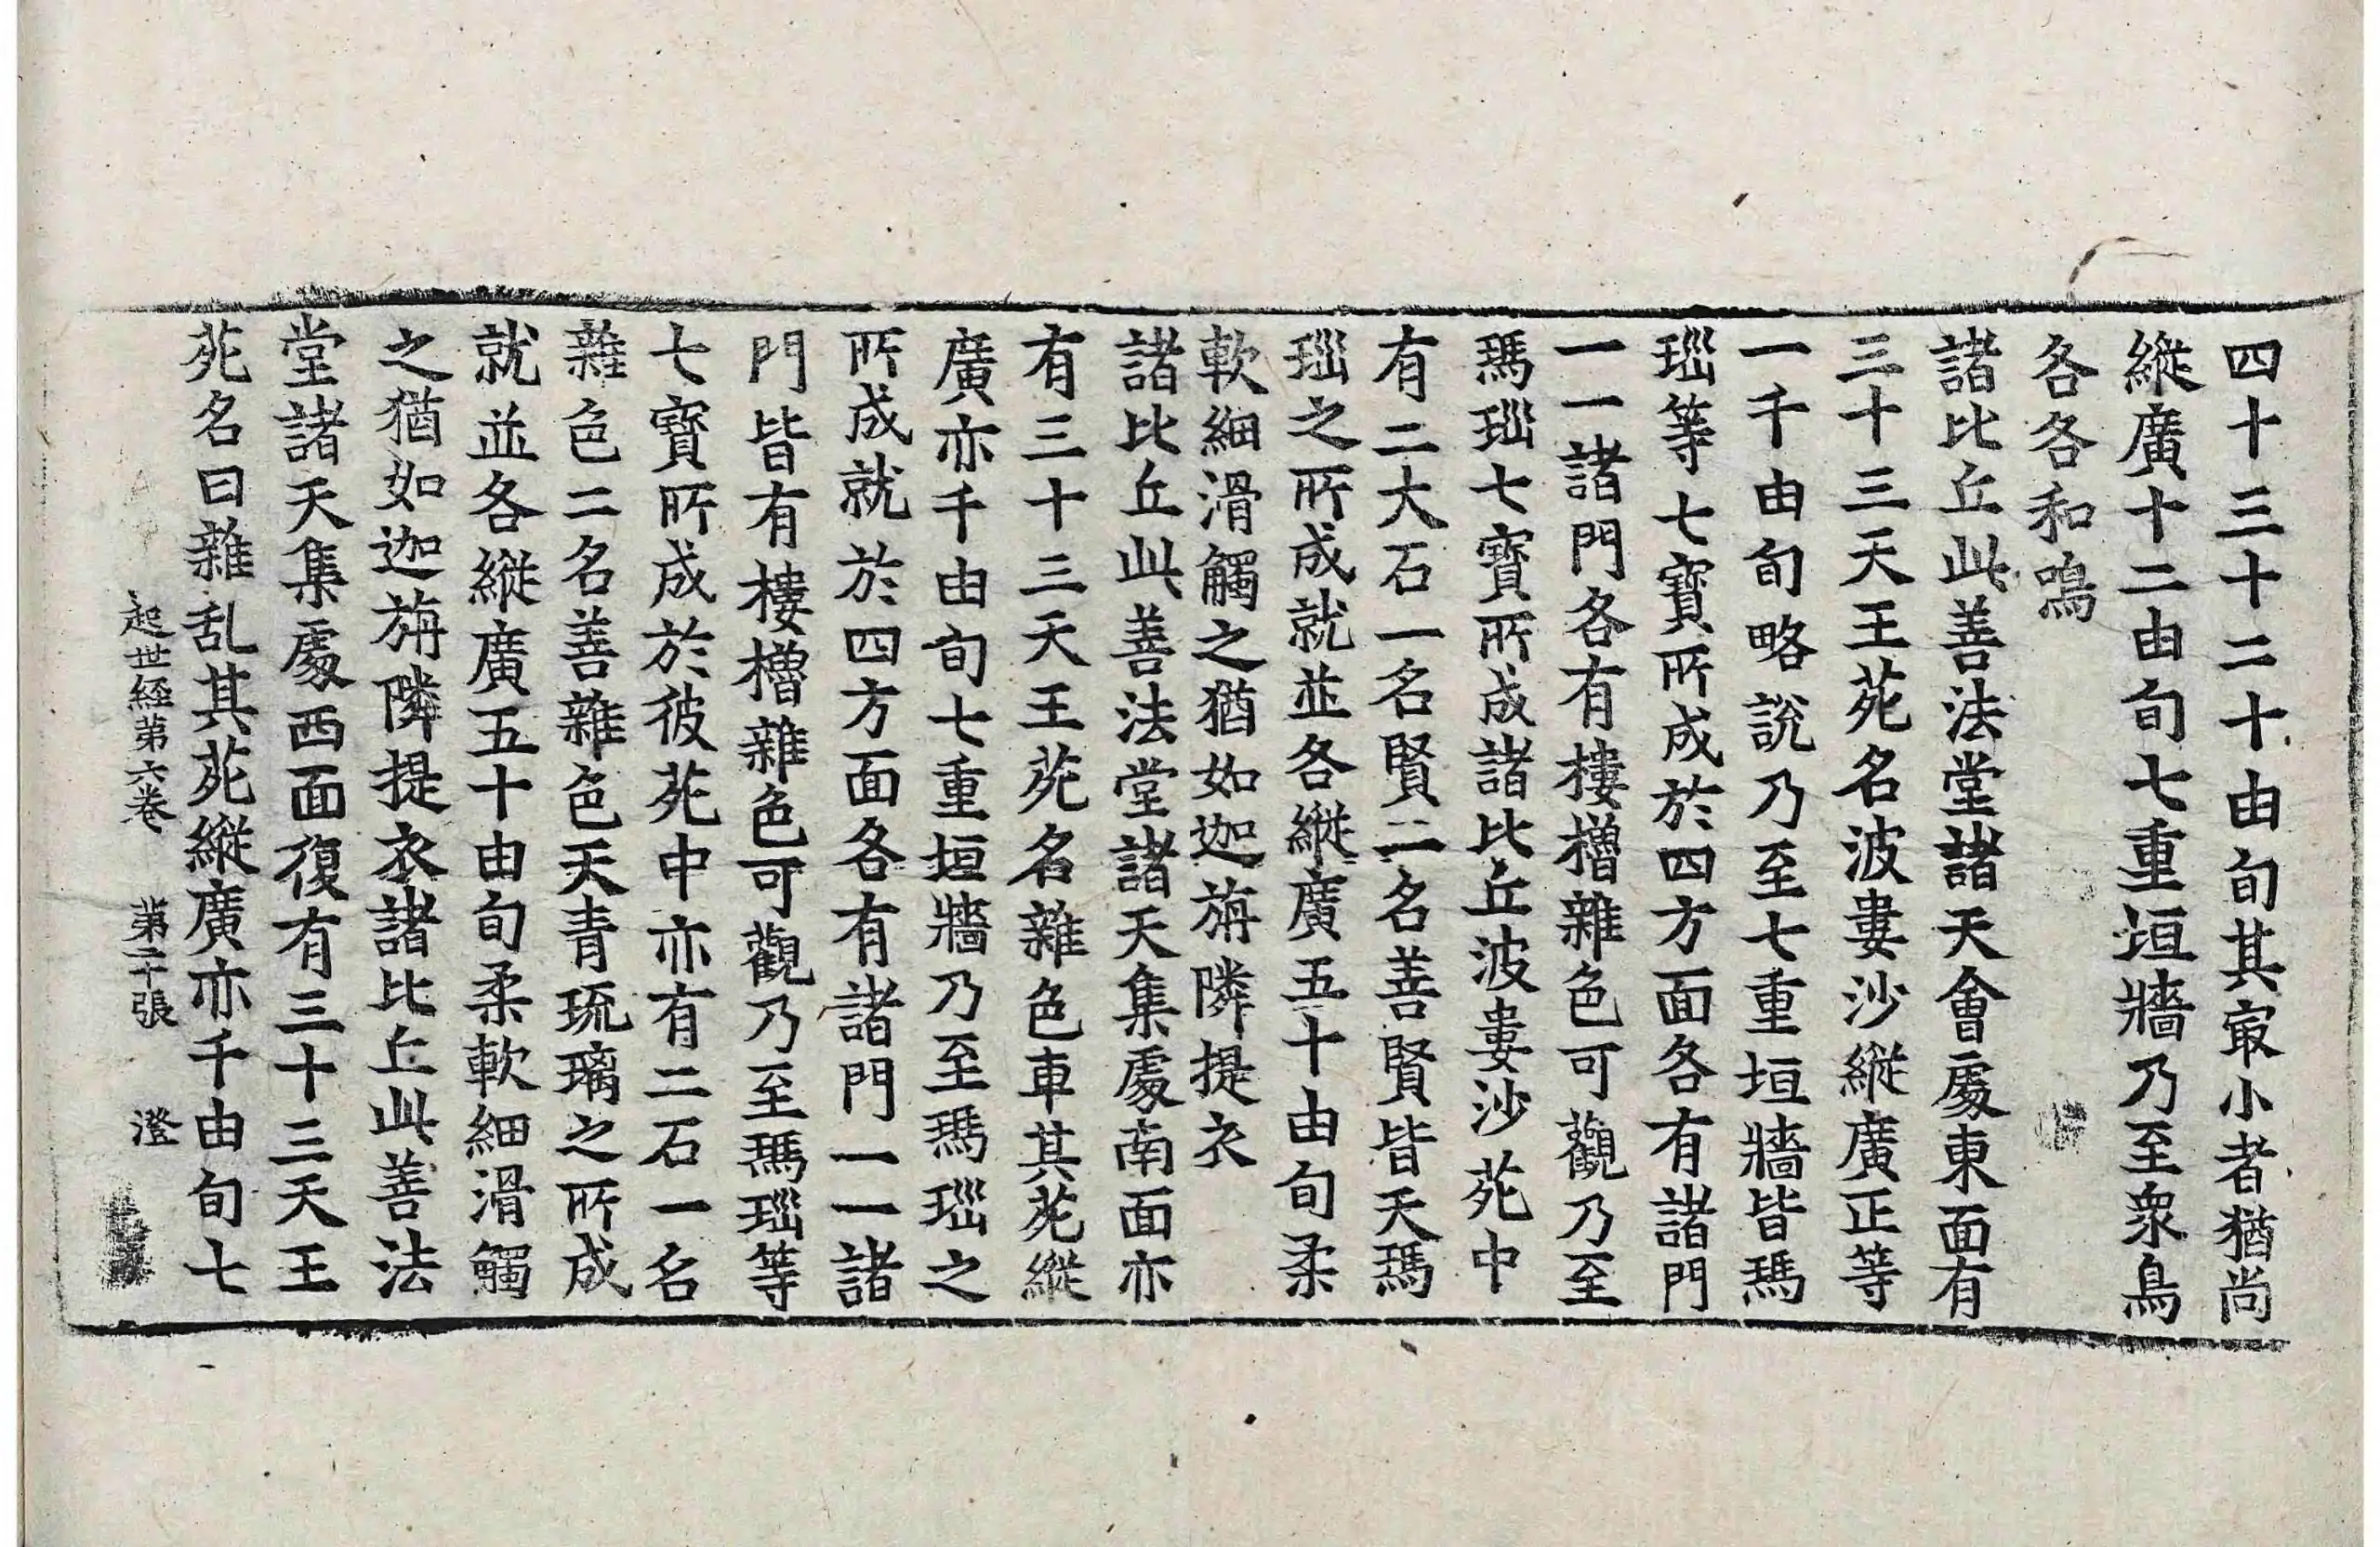 四十三十二十由旬其㝡小者猶尚
縱廣十二由旬七重垣牆乃至衆鳥
各各和鳴
諸比丘此善法堂諸天會處東面有
三十三天王苑名波婁沙縱廣正等
一千由旬略說乃至七重垣牆皆瑪
瑙等七寶所成於四方面各有諸門
一一諸門各有樓櫓雜色可觀乃至
瑪瑙七寶所成諸比丘波婁沙苑中
有二大石一名賢二名善賢皆天瑪
瑙之所成就並各縱廣五十由旬柔
軟細滑觸之猶如迦旃隣提衣
諸比丘此善法堂諸天集處南面亦
有三十三天王苑名雜色車其苑縱
廣亦千由旬七重垣牆乃至瑪瑙之
所成就於四方面各有諸門一一諸
門皆有樓櫓雜色可觀乃至瑪瑙等
七寶所成於彼苑中亦有二石一名
雜色二名善雜色天青琉璃之所成
就並各縱廣五十由旬柔軟細滑觸
之猶如迦旃隣提衣諸比丘此善法
堂諸天集處西面復有三十三天王
苑名曰雜乱其苑縱廣亦千由旬七
起世經第六卷 第二十張 澄